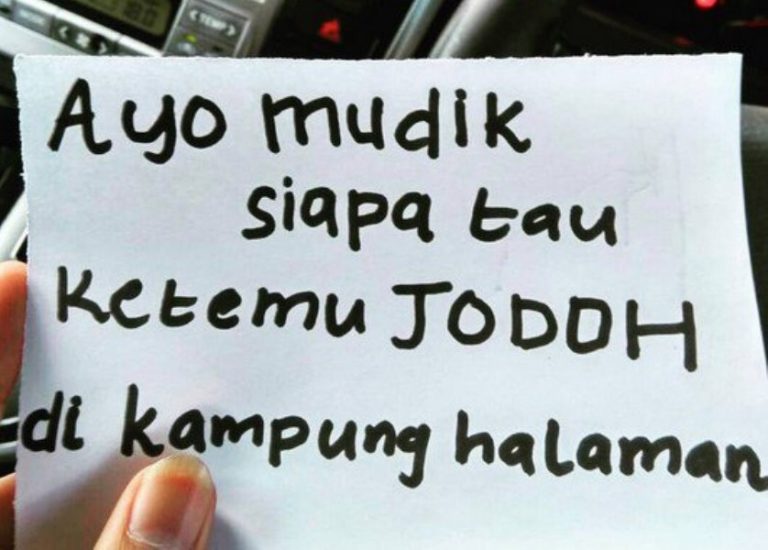 TEMP
Ayo mudik
siapa tau
Ketemu JODOH
di kampung halaman